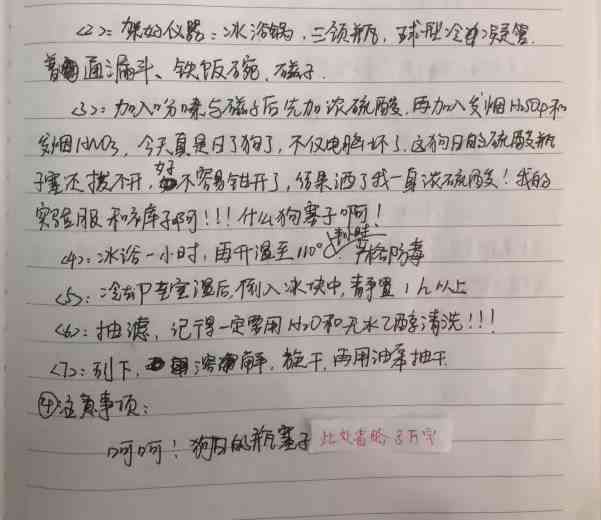 <2>：架好仪器：冰浴锅，三颈瓶，球型冷凝管，
普通漏斗、铁饭碗，磁子.
<3>：加入吩嗪与磁子后先加浓硫酸，再加入发烟H₂SO₄和
发烟HNO₃，今天真是日了狗了，不仅电脑坏了，这狗日的硫酸瓶
子塞还拔不开，好不容易钳开了，结果洒了我一身浓硫酸！我的
实验服和裤子啊！！！什么狗塞子啊！
<4>：冰浴一小时，再升温至110° 严格防毒
<5>：冷却至室温后，倒入冰块中，静置1h以上
<6>：抽滤，记得一定要用H₂O和无水乙醇清洗！！！
<7>：刮下，溶解，旋干，再用油泵抽干
④注意事项：
呵呵！狗日的瓶塞子 此处省略3万字